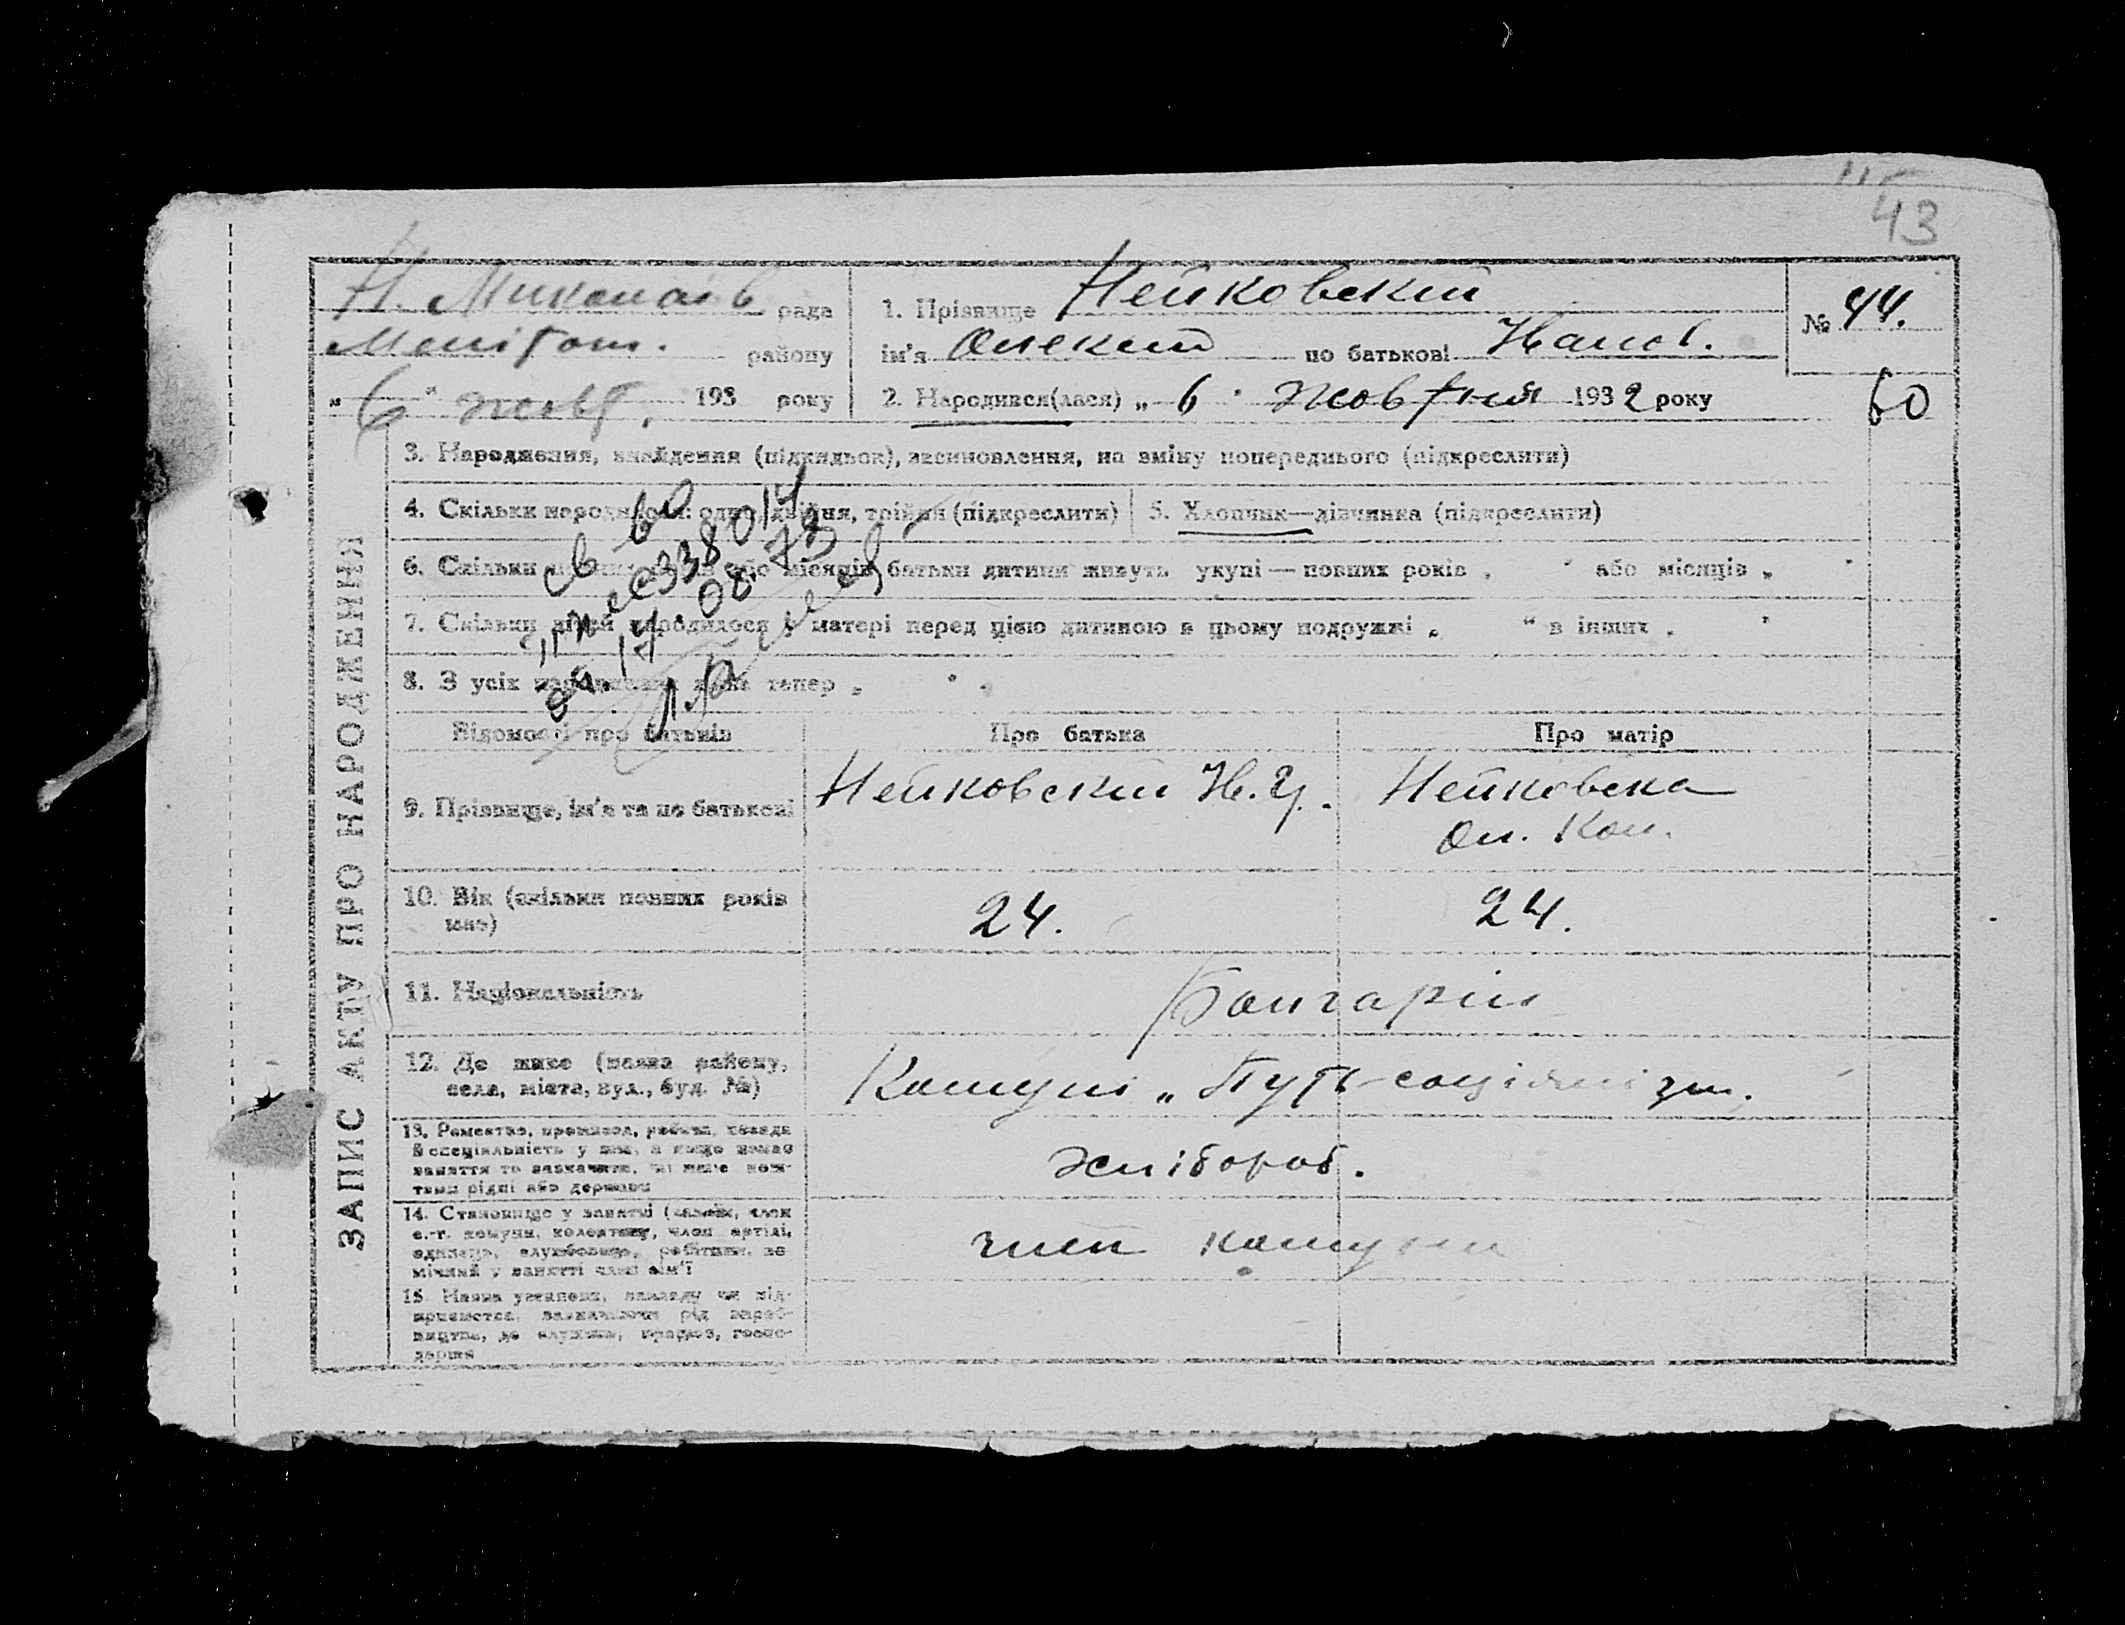 43
Н. Миколаїв рада
Мелітоп. району
„6" жовт. 193 року
1. Прізвище Нейковский
ім'я Олексій по батькові Иванов.
2. Народився(лася) „6" жовтня 1932 року
№ 44.
60
ЗАПИС АКТУ ПРО НАРОДЖЕННЯ
3. Народження, знайдення (підкидьок), засиновлення, на зміну попереднього (підкреслити)
4. Скільки народилося: одно, двійня, трійня (підкреслити)
5. Хлопчик—дівчинка (підкреслити)
6. Скільки або місяців батьки дитини живуть укупі—повних років „ " або місяців „ "
7. Скільки дітей народилося у матері перед цією дитиною в цьому подружжі „ " в інших „ "
8. З усіх тепер „ "
св во
338014
14.08.73
Відомості про батьків
Про батька
Про матір
9. Прізвище, ім'я та по батькові
Нейковский И.
Нейковска
Ол. Кон.
10. Вік (скільки повних років має)
24.
24.
11. Національність
Болгари
12. Де живе (назва району,
села, міста, вул., буд. №)
Комуні „Путь соціялізм.
13. Ремество, промисел, робота, посада
й спеціяльність у них, а якщо немає
заняття то зазначити, чи живе кош-
тами рідні або держави
хлібороб.
14. Становище у занятті (хазяїн, член
с.-г. комуни, колективу, член артілі,
одинець, службовець, робітник, по-
мічний у занятті член сім'ї
член комуни
15. Назва установи, закладу чи під-
приємства, зазначаючи рід вироб-
ництва, де служить, працює, госпо-
дарює